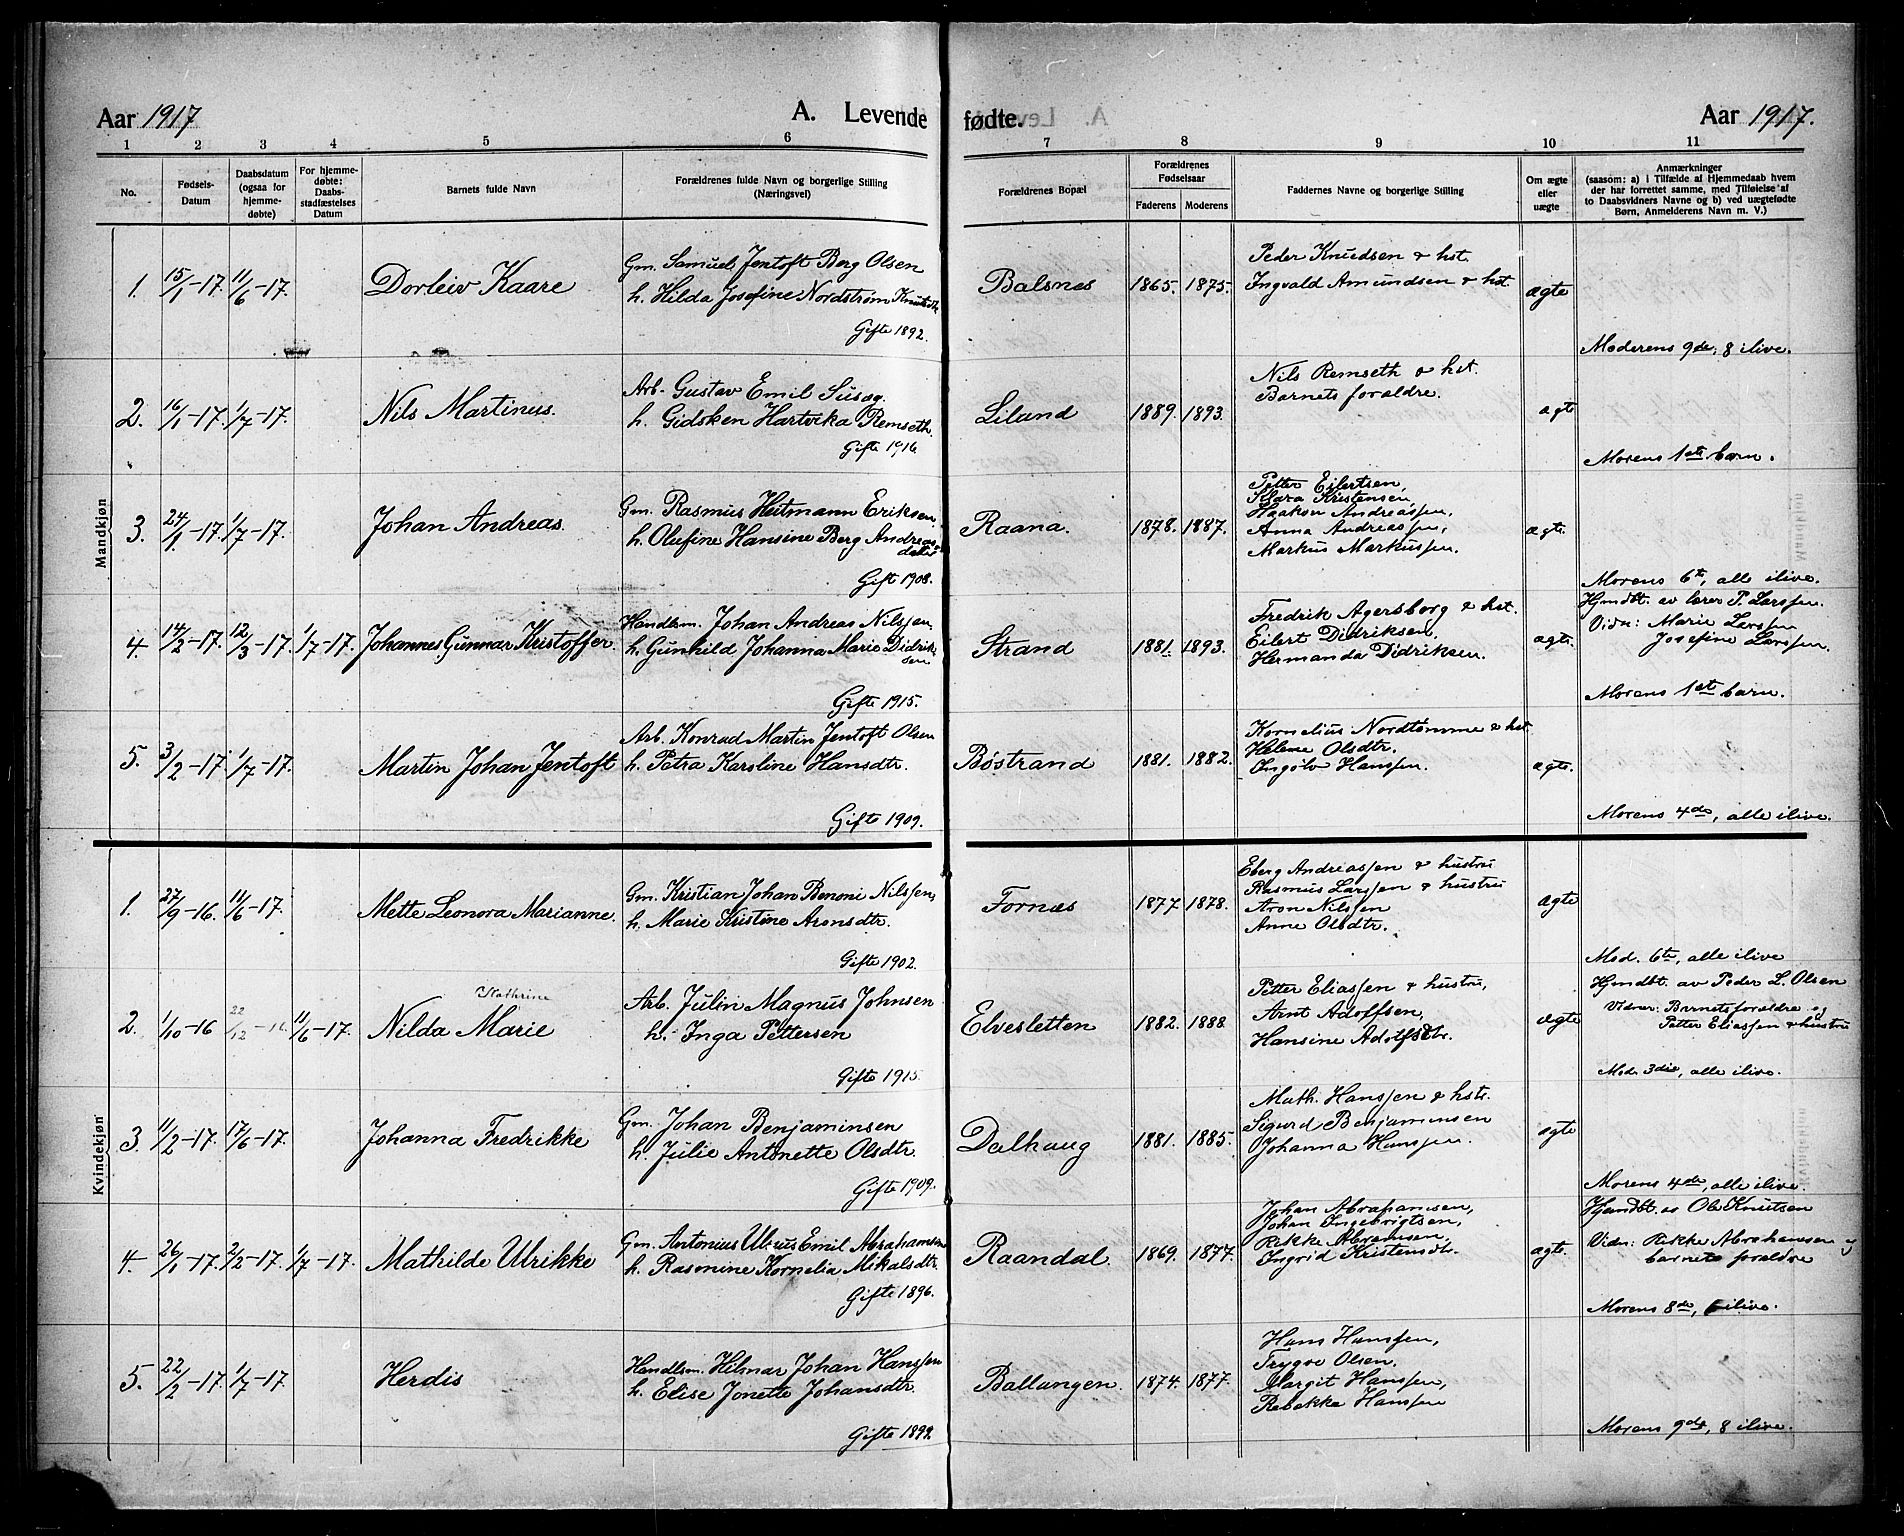 Aar 1917
A. Levende fødte.
Aar 1917.
1 2 3 4 5 6 7 8 9 10 11
No.
Fødsels-
Datum
Daabsdatum
(ogsaa for
hjemme-
døbte)
For hjemme-
døbte:
Daabs-
stadfæstelses
Datum
Barnets fulde Navn
Forældrenes fulde Navn og borgerlige Stilling
(Næringsvei)
Forældrenes Bopæl
Forældrenes
Fødselsaar
Faderens
Moderens
Faddernes Navne og borgerlige Stilling
Om ægte
eller
uægte
Anmærkninger
(saasom: a) i Tilfælde af Hjemmedaab hvem
der har forrettet samme, med Tilføielse af
to Daabsvidners Navne og b) ved uægtefødte
Børn, Anmelderens Navn m. V.)
Mandkjøn
1. 15/1-17. 11/6-17. Dorleiv Kaare
Gm. Samuel Jentoft Berg Olsen
h. Hilda Josefine Nordstrøm
Gifte 1892.
Balsnes 1865. 1875.
Peder Knudsen & hst.
Ingvald Amundsen & hst.
ægte
Moderens 9de, 8 ilive.
2. 16/1-17. 1/7-17. Nils Martinus.
Arb. Gustav Emil Susæg.
h. Gidsken Hartvika Remseth.
Gifte 1916.
Liland 1889. 1893.
Nils Remseth & hst.
Barnets forældre.
ægte
Morens 1ste barn.
3. 24/1-17. 1/7-17. Johan Andreas.
Gm. Rasmus Heitmann Eriksen.
h. Olufine Hansine Berg Andreas-
datter
Gift 1908.
Raana. 1878. 1887.
Petter Eilertsen,
Klara Kristensen,
Haakon Andreassen,
Anna Andreassen,
Markus Markussen.
ægte.
Morens 6te, alle ilive.
4. 14/2-17. 12/3-17. 1/7-17. Johannes Gunnar Kristoffer.
Handlsm. Johan Andreas Nilssen
h. Gunhild Johanna Marie Didrik-
sen
Gifte 1915.
Strand 1881. 1893.
Fredrik Agersborg & hst.
Eilert Didriksen.
Hermanda Didriksen.
ægte.
Hjmdbt. av lærer P. Larssen.
Vidn: Marie Larssen
Josefine Larssen.
Morens 1ste barn.
5. 3/2-17. 1/7-17. Martin Johan Jentoft
Arb. Konrad Martin Jentoft Olsen
h. Petra Karoline Hansdtr.
Gifte 1909.
Bøstrand 1881. 1882.
Kornelius Nordtømme & hst
Helene Olsdtr.
Ingolv Hanssen.
ægte.
Morens 4de, alle ilive.
Kvindekjøn
1. 27/9-16. 11/6-17. Mette Leonora Marianne.
Gm. Kristian Johan Benoni Nilssen,
h. Marie Kristine Aronsdtr.
Gifte 1902.
Fornes 1877 1878.
Eberg Andreassen & hustru
Rasmus Larssen & hustru
Aron Nilssen
Anne Olsdtr.
ægte
Mod. 6te, alle ilive
2. 1/10-16 22/12-16. 11/6-17.
Kathrine
Nilda Marie
Arb. Julin Magnus Johnsen
h. Inga Pettersen
Gifte 1915.
Elvesletten 1882. 1888.
Petter Eliassen & hustru,
Arnt Adolfsen,
Hansine Adolfsdtr.
ægte
Hjmdbt. av Peder L. Olsen
Vidner: Barnets forældre og
Petter Eliassen & hustru
Mod. 3die, alle ilive.
3. 11/2-17. 17/6-17. Johanna Fredrikke
Gm. Johan Benjaminsen
h. Julie Antonette Olsdtr.
Gifte 1909.
Dalhaug 1881. 1885.
Math. Hanssen & hstr.
Sigurd Benjaminsen
Johanna Hanssen.
ægte
Morens 4de, alle ilive.
4. 26/1-17. 2/2-17. 1/7-17. Mathilde Ulrikke
Gm. Antonius Ulrius Emil Abrahamsen
h. Rasmine Kornelia Mikalsdtr.
Gifte 1896.
Raandal. 1869. 1877.
Johan Abrahamsen,
Johan Ingebrigtsen,
Rikke Abramsen,
Ingrid Kristensdtr.
ægte.
Hjmdbt. av Ole Knutsen
Vidn: Rikke Abrahamsen og
barnets forældre
Morens 8de, 6 ilive.
5. 22/2-17. 1/7-17. Herdis
Handlsm. Hilmar Johan Hanssen
h. Elise Jonette Johansdtr.
Gifte 1899.
Ballangen. 1874. 1877.
Hans Hanssen,
Trygve Olsen.
Margit Hanssen,
Rebekka Hanssen
Morens 9de, 8 ilive.